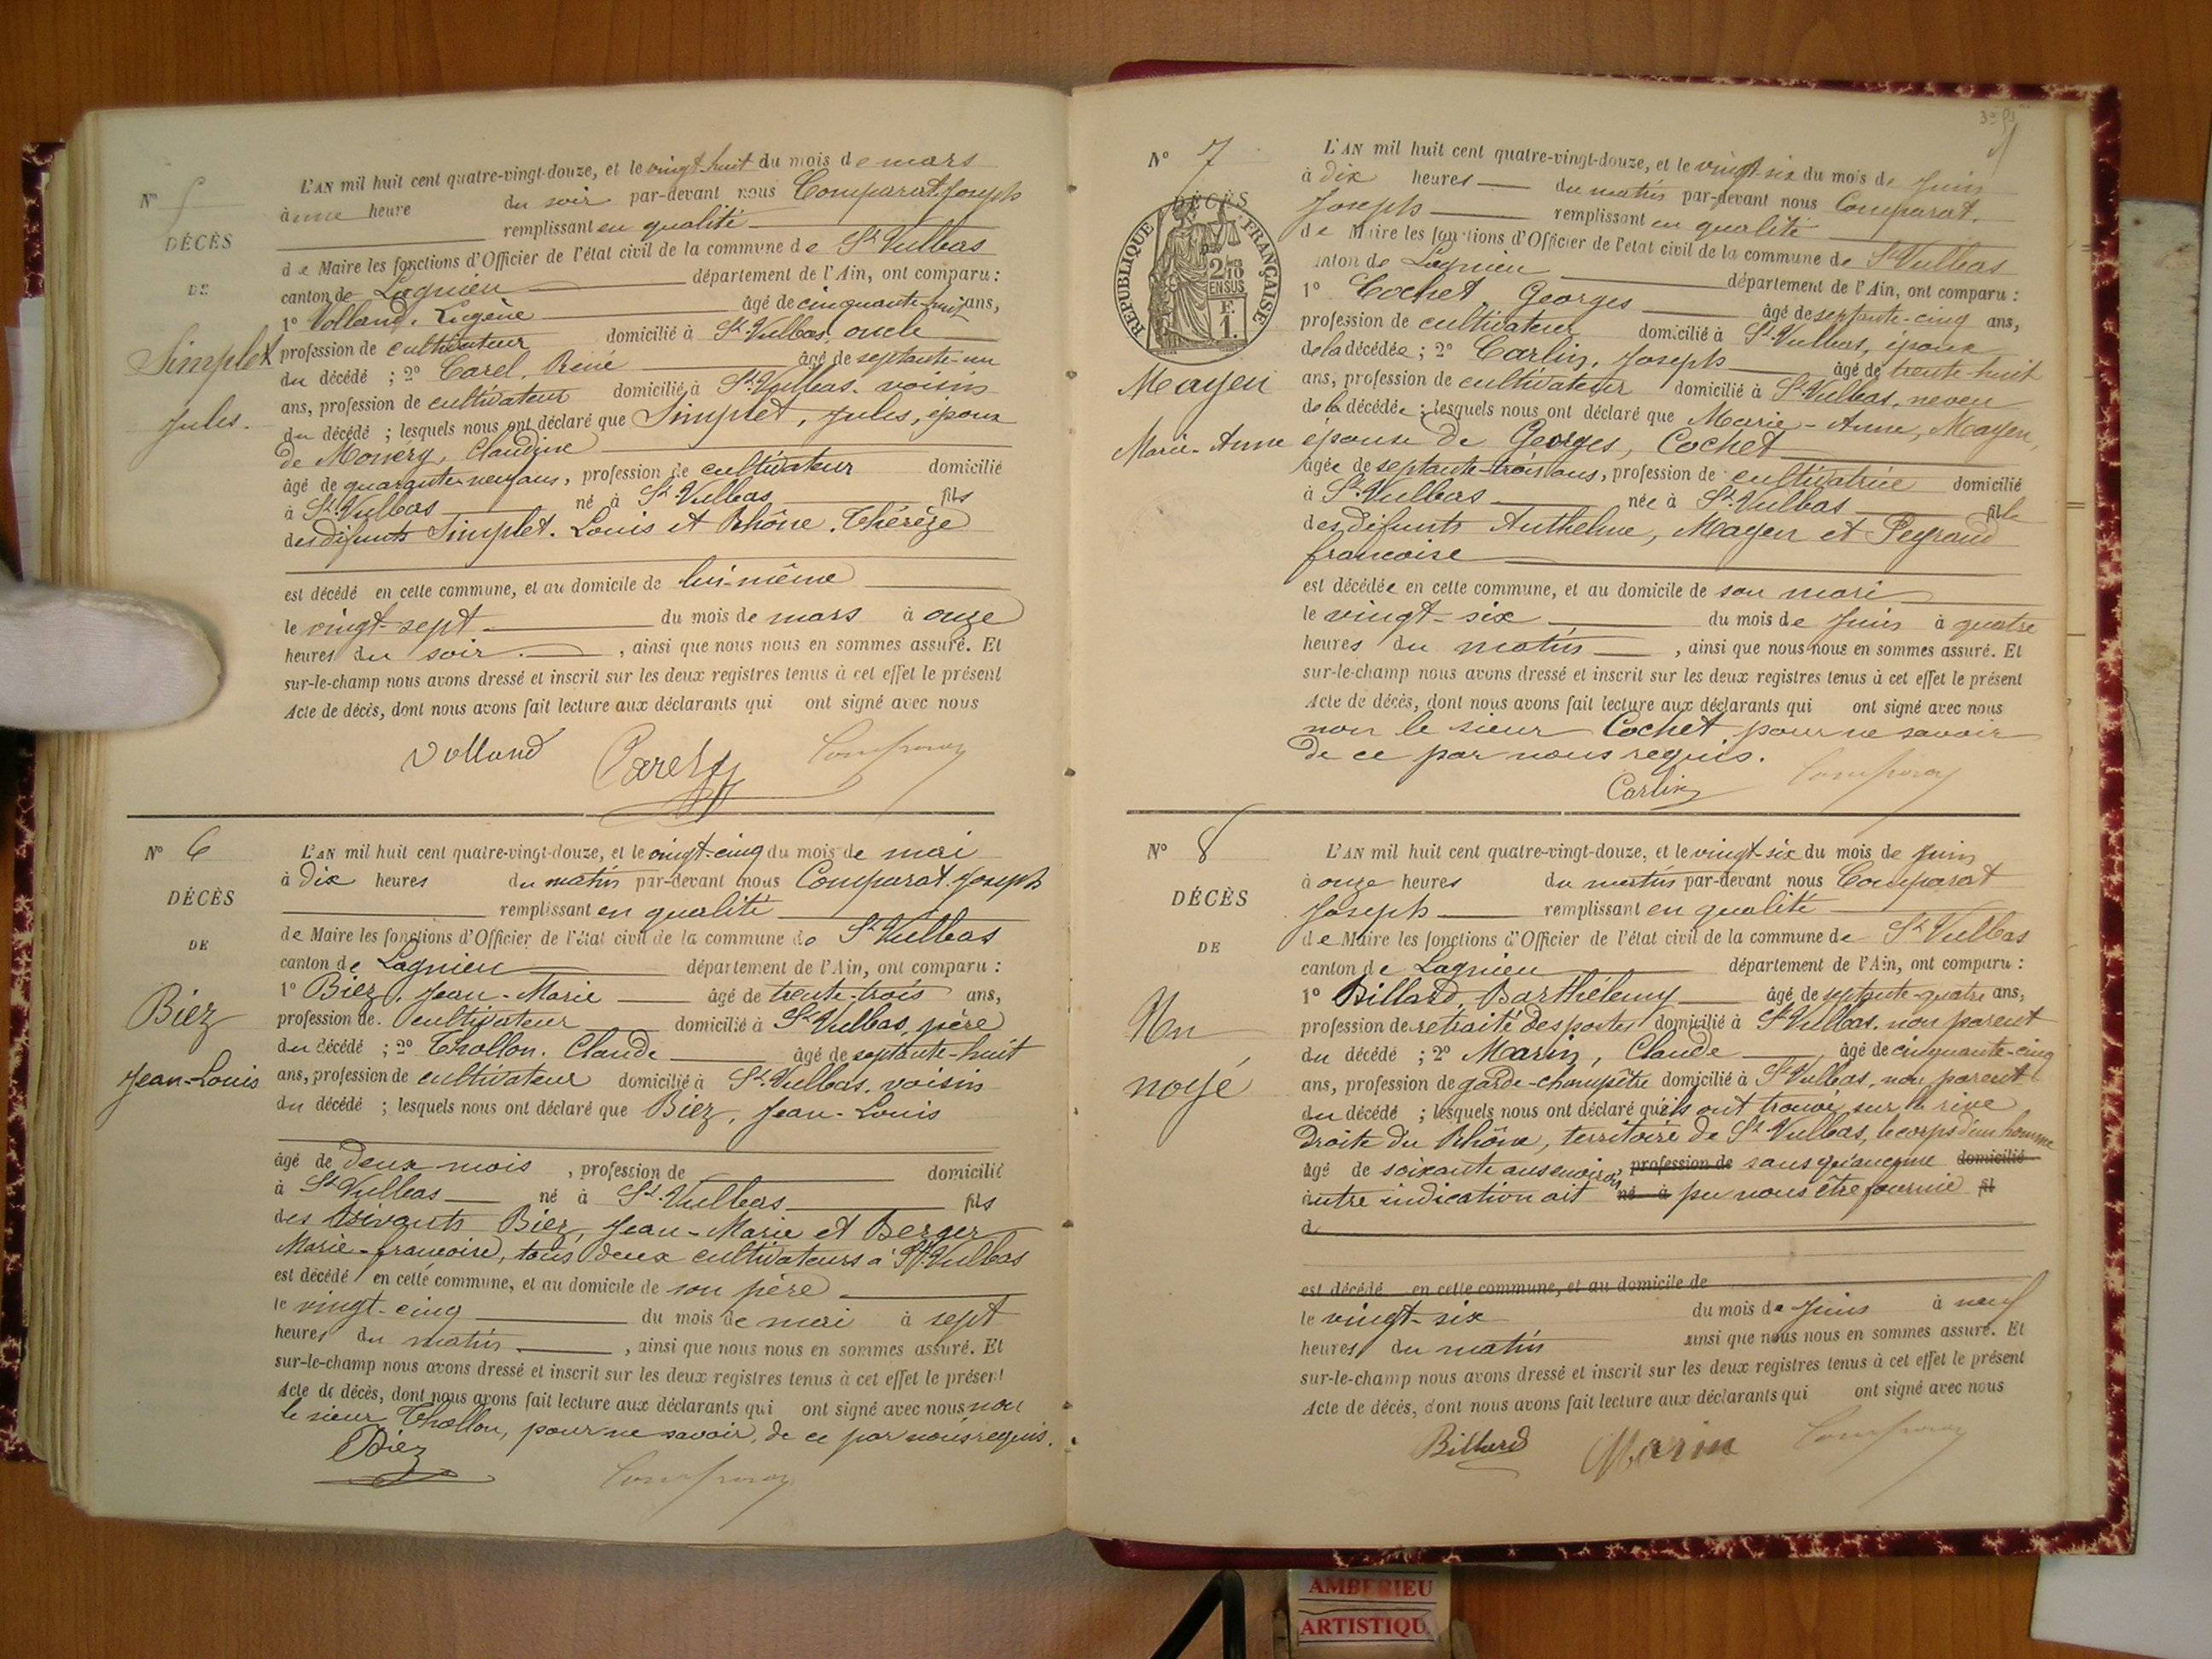 L'AN mil huit cent quatre-vingt-douze, et le vingt-huit du mois de mars
N° 5
à une heure du soir par-devant nous Comparat Joseph
remplissant en qualité
DÉCÈS
de Maire les fonctions d'Officier de l'état civil de la commune de St Vulbas
DE
canton de Lagnieu département de l'Ain, ont comparu :
1° Volland, Eugène âgé de cinquante-huit ans,
Simplet
profession de cultivateur domicilié à St Vulbas, oncle
du décédé ; 2° Carel, René âgé de septante-un
Jules.
ans, profession de cultivateur domicilié à St Vulbas, voisin
du décédé ; lesquels nous ont déclaré que Simplet, Jules, époux
de Monéry, Claudine
âgé de quarante-neuf ans, profession de cultivateur domicilié
à St Vulbas né à St Vulbas fils
des défunts Simplet, Louis et Rhône, Thérèze
est décédé en cette commune, et au domicile de lui-même
le vingt-sept du mois de mars à onze
heures du soir , ainsi que nous nous en sommes assuré. Et
sur-le-champ nous avons dressé et inscrit sur les deux registres tenus à cet effet le présent
Acte de décès, dont nous avons fait lecture aux déclarants qui ont signé avec nous
Volland Carel Comparat
N° 6
L'AN mil huit cent quatre-vingt-douze, et le vingt-cinq du mois de mai
à dix heures du matin par-devant nous Comparat Joseph
DÉCÈS
remplissant en qualité
DE
de Maire les fonctions d'Officier de l'état civil de la commune de St Vulbas
canton de Lagnieu département de l'Ain, ont comparu :
Biez
1° Biez, Jean-Marie âgé de trente-trois ans,
profession de cultivateur domicilié à St Vulbas, père
du décédé ; 2° Thollon, Claude âgé de septante-huit
Jean-Louis
ans, profession de cultivateur domicilié à St Vulbas, voisin
du décédé ; lesquels nous ont déclaré que Biez, Jean-Louis
âgé de deux mois , profession de domicilié
à St Vulbas né à St Vulbas fils
des vivants Biez, Jean-Marie et Berger
Marie-francoise, tous deux cultivateurs à St Vulbas
est décédé en cette commune, et au domicile de son père
le vingt-cinq du mois de mai à sept
heures du matin , ainsi que nous nous en sommes assuré. Et
sur-le-champ nous avons dressé et inscrit sur les deux registres tenus à cet effet le présent
Acte de décès, dont nous avons fait lecture aux déclarants qui ont signé avec nous non
le sieur Thollon, pour ne savoir, de ce par nous requis.
Biez Comparat
N° 7
L'AN mil huit cent quatre-vingt-douze, et le vingt-six du mois de Juin
à dix heures du matin par-devant nous Comparat
DÉCÈS
Joseph remplissant en qualité
RÉPUBLIQUE FRANÇAISE
de Maire les fonctions d'Officier de l'état civil de la commune de St Vulbas
2/10
EN SUS
F.
1.
anton de Lagnieu département de l'Ain, ont comparu :
1° Cochet, Georges âgé de septante-cinq ans,
profession de cultivateur domicilié à St Vulbas, époux
de la décédée ; 2° Carlin, Joseph âgé de trente-huit
Mayen
ans, profession de cultivateur domicilié à St Vulbas, neveu
de la décédée ; lesquels nous ont déclaré que Marie-Anne, Mayen,
Marie-Anne
épouse de Georges, Cochet
âgée de septante-trois ans, profession de cultivatrice domicilié
à St Vulbas née à St Vulbas file
des défunts Anthelme, Mayen et Peyraud
francoise
est décédée en cette commune, et au domicile de son mari
le vingt-six du mois de Juin à quatre
heures du matin , ainsi que nous nous en sommes assuré. Et
sur-le-champ nous avons dressé et inscrit sur les deux registres tenus à cet effet le présent
Acte de décès, dont nous avons fait lecture aux déclarants qui ont signé avec nous
non le sieur Cochet, pour ne savoir
de ce par nous requis.
Carlin Comparat
N° 8
L'AN mil huit cent quatre-vingt-douze, et le vingt-six du mois de Juin
à onze heures du matin par-devant nous Comparat
DÉCÈS
Joseph remplissant en qualité
DE
de Maire les fonctions d'Officier de l'état civil de la commune de St Vulbas
canton de Lagnieu département de l'Ain, ont comparu :
Un
1° Billard, Barthélemy âgé de septante-quatre ans,
profession de retraité des postes domicilié à St Vulbas, non parent
du décédé ; 2° Marin, Claude âgé de cinquante-cinq
noyé
ans, profession de garde-champêtre domicilié à St Vulbas, non parent
du décédé ; lesquels nous ont déclaré qu'ils ont trouvé sur la rive
Droite du Rhône, territoire de St Vulbas, le corps d'un homme
âgé de soixante ans environ, profession de sans qu'aucune domicilié
autre indication ait né à pu nous être fournie fil
d
est décédé en cette commune, et au domicile de
le vingt-six du mois de Juin à neuf
heures du matin ainsi que nous nous en sommes assuré. Et
sur-le-champ nous avons dressé et inscrit sur les deux registres tenus à cet effet le présent
Acte de décès, dont nous avons fait lecture aux déclarants qui ont signé avec nous
Billard Marin Comparat
AMBERIEU
ARTISTIQU